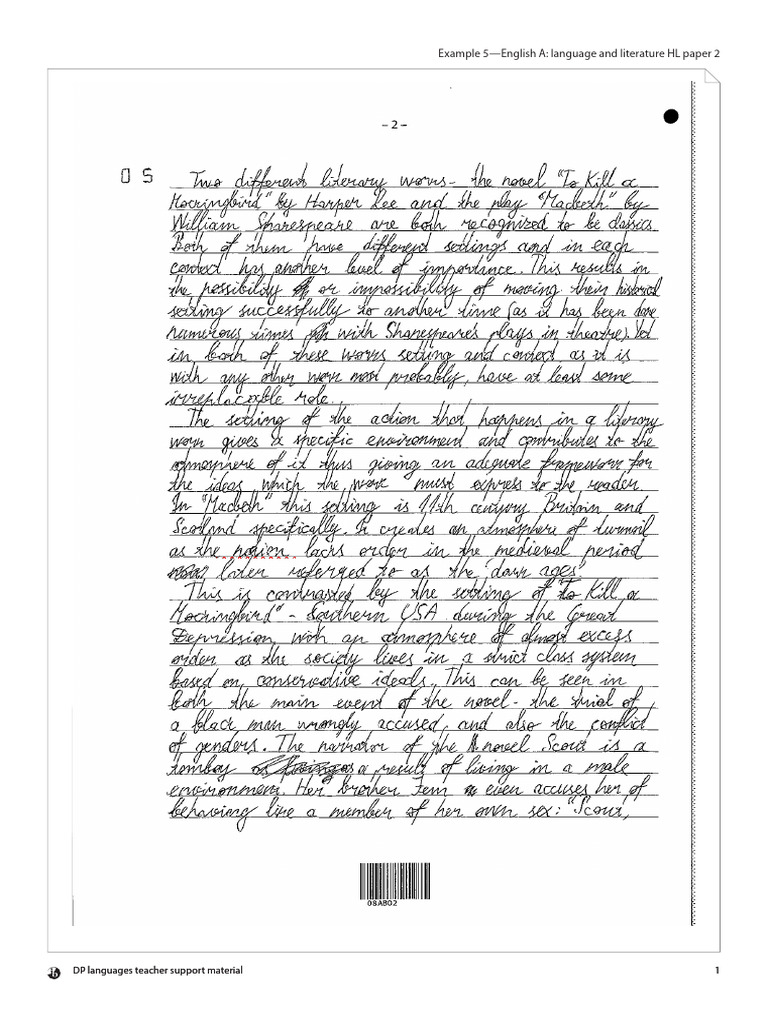 Example 5—English A: language and literature HL paper 2
– 2 –
05
Two different literary works - the novel "To Kill a
Mockingbird" by Harper Lee and the play "Macbeth" by
William Shakespeare are both recognized to be classics.
Both of them have different settings and in each
context has another level of importance. This results in
the possibility or impossibility of moving their historical
setting successfully to another time (as it has been done
numerous times with Shakespeare's plays in theatre). Yet
in both of these works setting and context as it is
with any other work most probably, have at least some
irreplaceable role.
The setting of the action that happens in a literary
work gives a specific environment and contributes to the
atmosphere of it thus giving an adequate framework for
the ideas which the work must express to the reader.
In "Macbeth" this setting is 11th century Britain and
Scotland specifically. It creates an atmosphere of turmoil
as the nation lacks order in the medieval period
later referred to as the "dark ages".
This is contrasted by the setting of "To Kill a
Mockingbird" - Southern USA during the Great
Depression, with an atmosphere of almost excess
order as the society lives in a strict class system
based on conservative ideals. This can be seen in
both the main event of the novel - the trial of
a black man wrongly accused, and also the conflict
of genders. The narrator of the novel Scout is a
tomboy as a result of living in a male
environment. Her brother Jem even accuses her of
behaving like a member of her own sex: "Scout,
08AB02
DP languages teacher support material
1